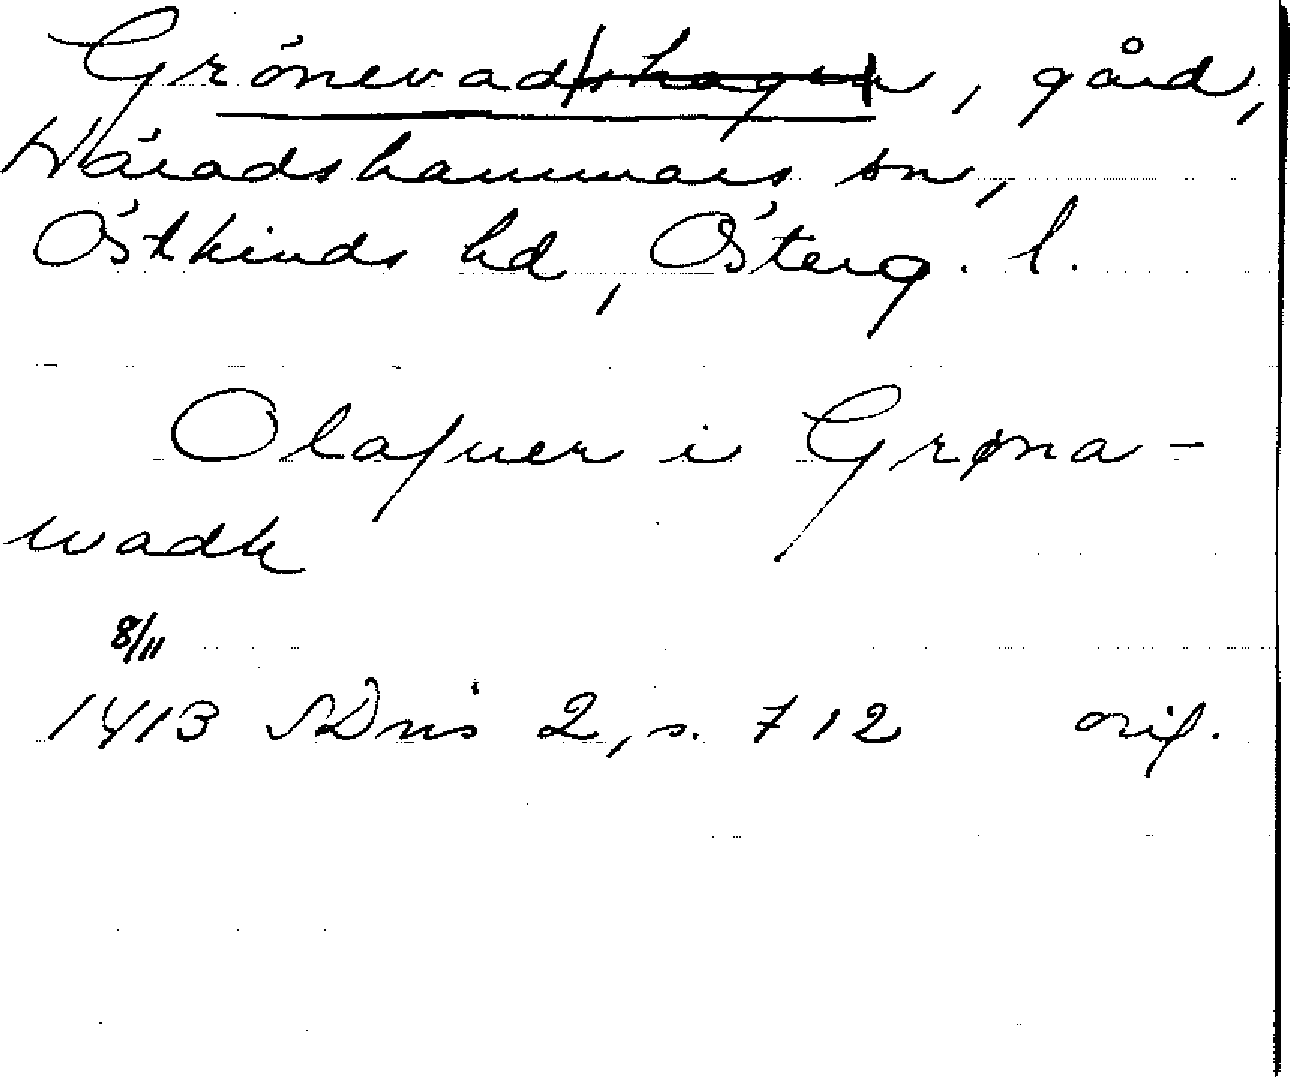 Grönevadshagen, gård,
Häradshammars sn,
Östkinds hd, Österg. l.
Olafuer i Grøna-
wadh
8/11
1413 SDns 2, s. 712 orig.